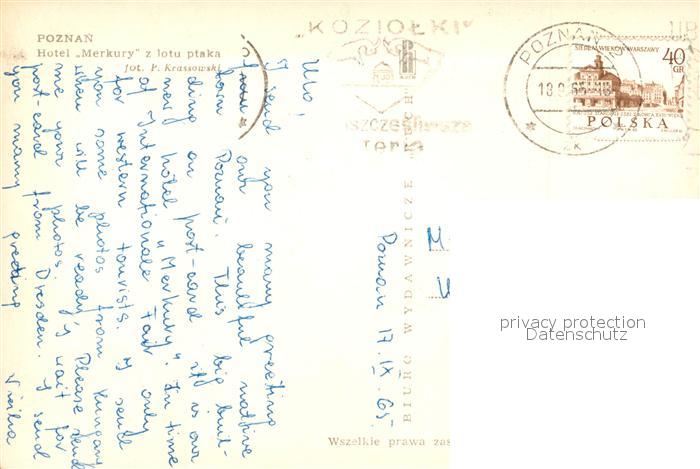 POZNAŃ
Hotel „Merkury" z lotu ptaka
fot. P. Krassowski
„KOZIOŁKI"
POZNAŃ
SIEDEM WIEKÓW WARSZAWY
40
GR
POLSKA
I send you many greeting
from our beautiful native
town Poznań. This big buil-
ding on post-card it is our
new hotel "Merkury". In time
of Internationale Fair only
for western tourists. I send
you some photos from Hungary
when will be ready, Please send
me your photos. I wait for
post-card from Dresden. I send
you mamy greeting
Poznan 17. IX. 65.
BIURO WYDAWNICZE „RUCH"
Wszelkie prawa zas
privacy protection
Datenschutz